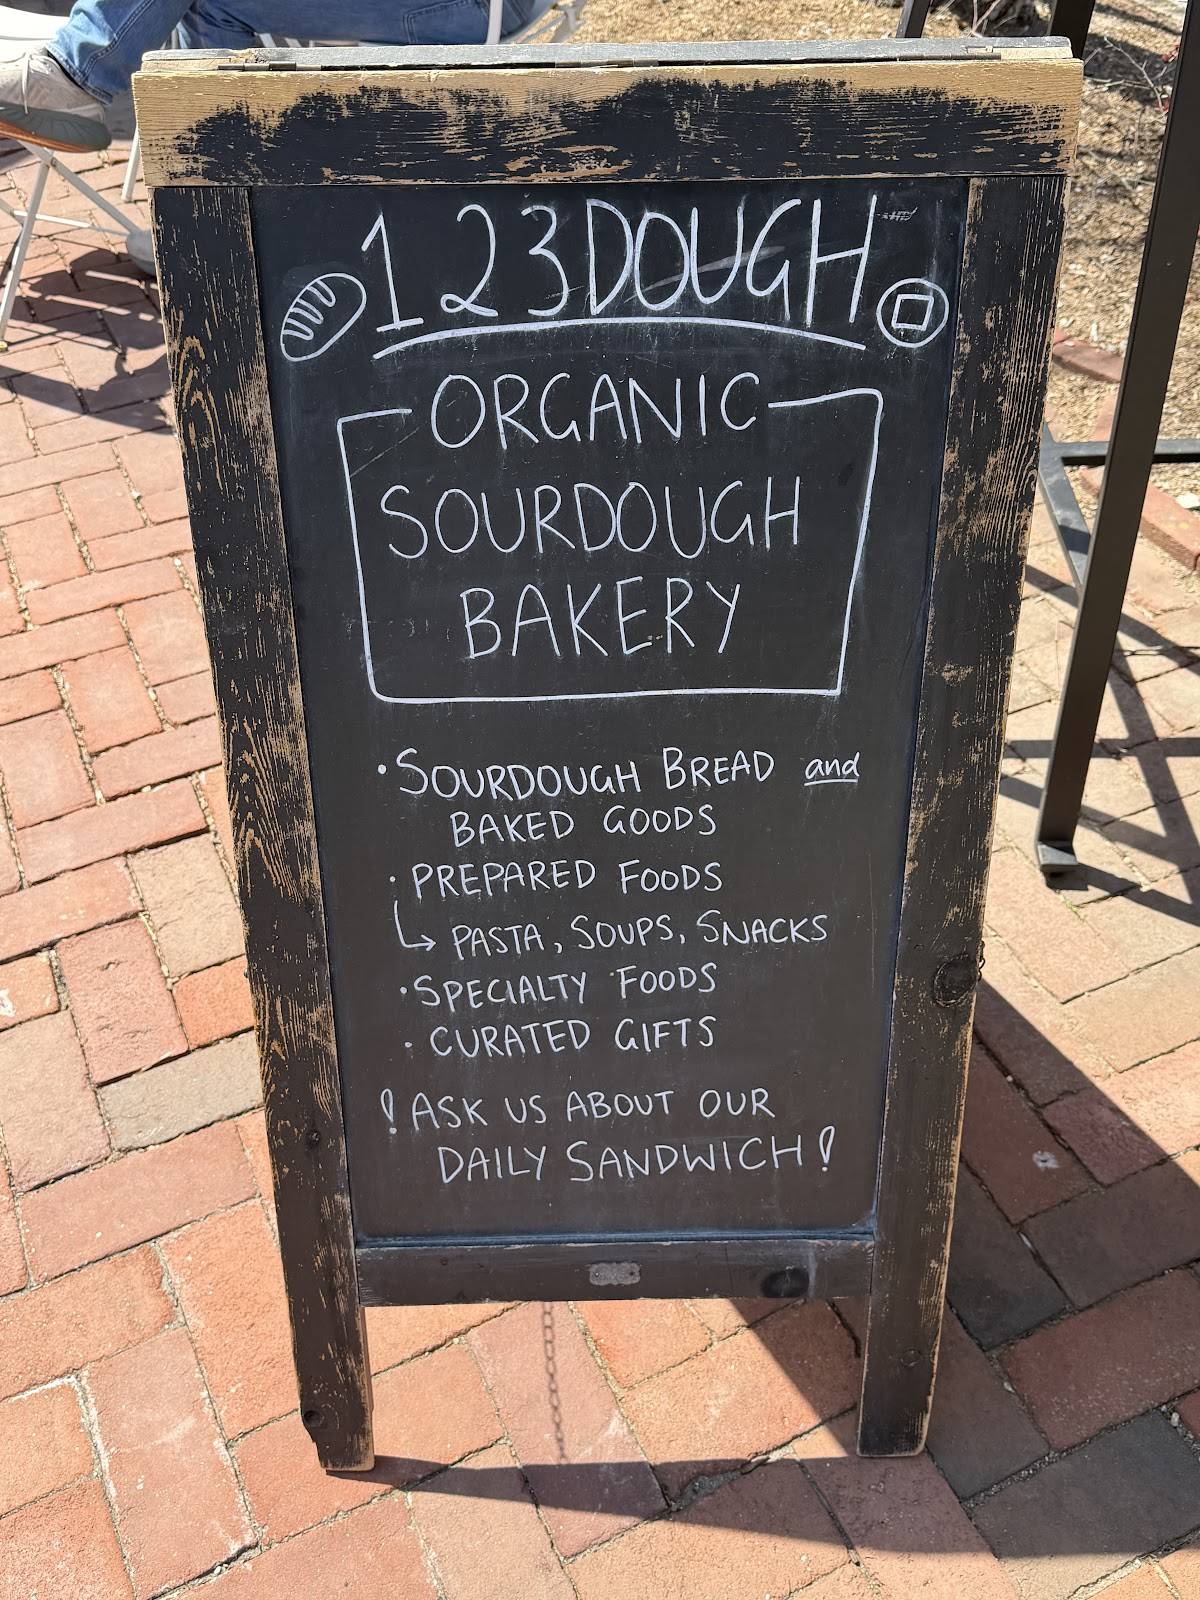 123DOUGH
ORGANIC
SOURDOUGH
BAKERY
• SOURDOUGH BREAD and
BAKED GOODS
• PREPARED FOODS
↳ PASTA, SOUPS, SNACKS
• SPECIALTY FOODS
• CURATED GIFTS
! ASK US ABOUT OUR
DAILY SANDWICH!